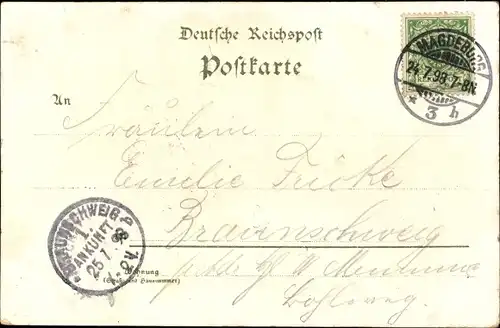 Deutsche Reichspost
Postkarte
MAGDEBURG
24.7.98. 7-8N.
* 3 h
An
Fräulein
Emilie Fricke
Braunschweig
BRAUNSCHWEIG
1.
ANKUNFT
25.7.98
Wohnung
(Straße und Hausnummer)
W